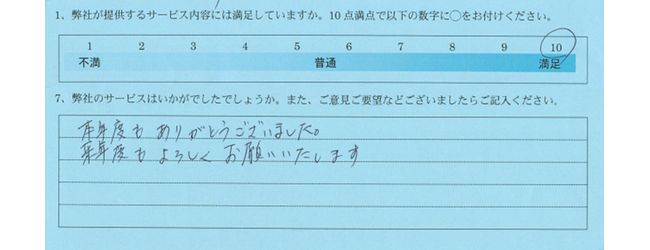 1、弊社が提供するサービス内容には満足していますか。10点満点で以下の数字に○をお付けください。
1 2 3 4 5 6 7 8 9 10
不満 普通 満足
7、弊社のサービスはいかがでしたでしょうか。また、ご意見ご要望などございましたらご記入ください。
本年度も ありがとうございました。
来年度も よろしく お願いいたします